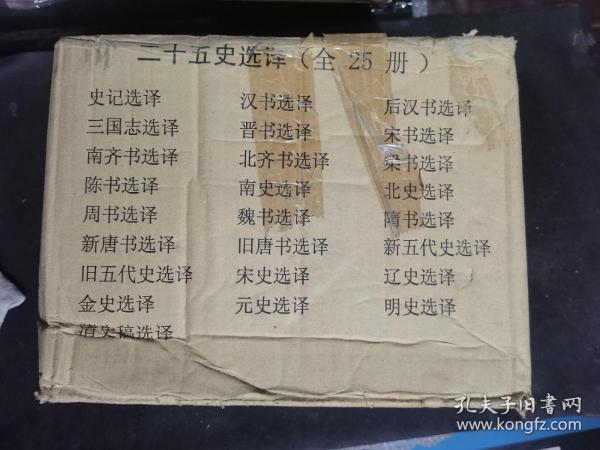 二十五史选译（全 25 册）
史记选译 汉书选译 后汉书选译
三国志选译 晋书选译 宋书选译
南齐书选译 北齐书选译 梁书选译
陈书选译 南史选译 北史选译
周书选译 魏书选译 隋书选译
新唐书选译 旧唐书选译 新五代史选译
旧五代史选译 宋史选译 辽史选译
金史选译 元史选译 明史选译
清史稿选译
孔夫子旧书网
www.kongfz.com